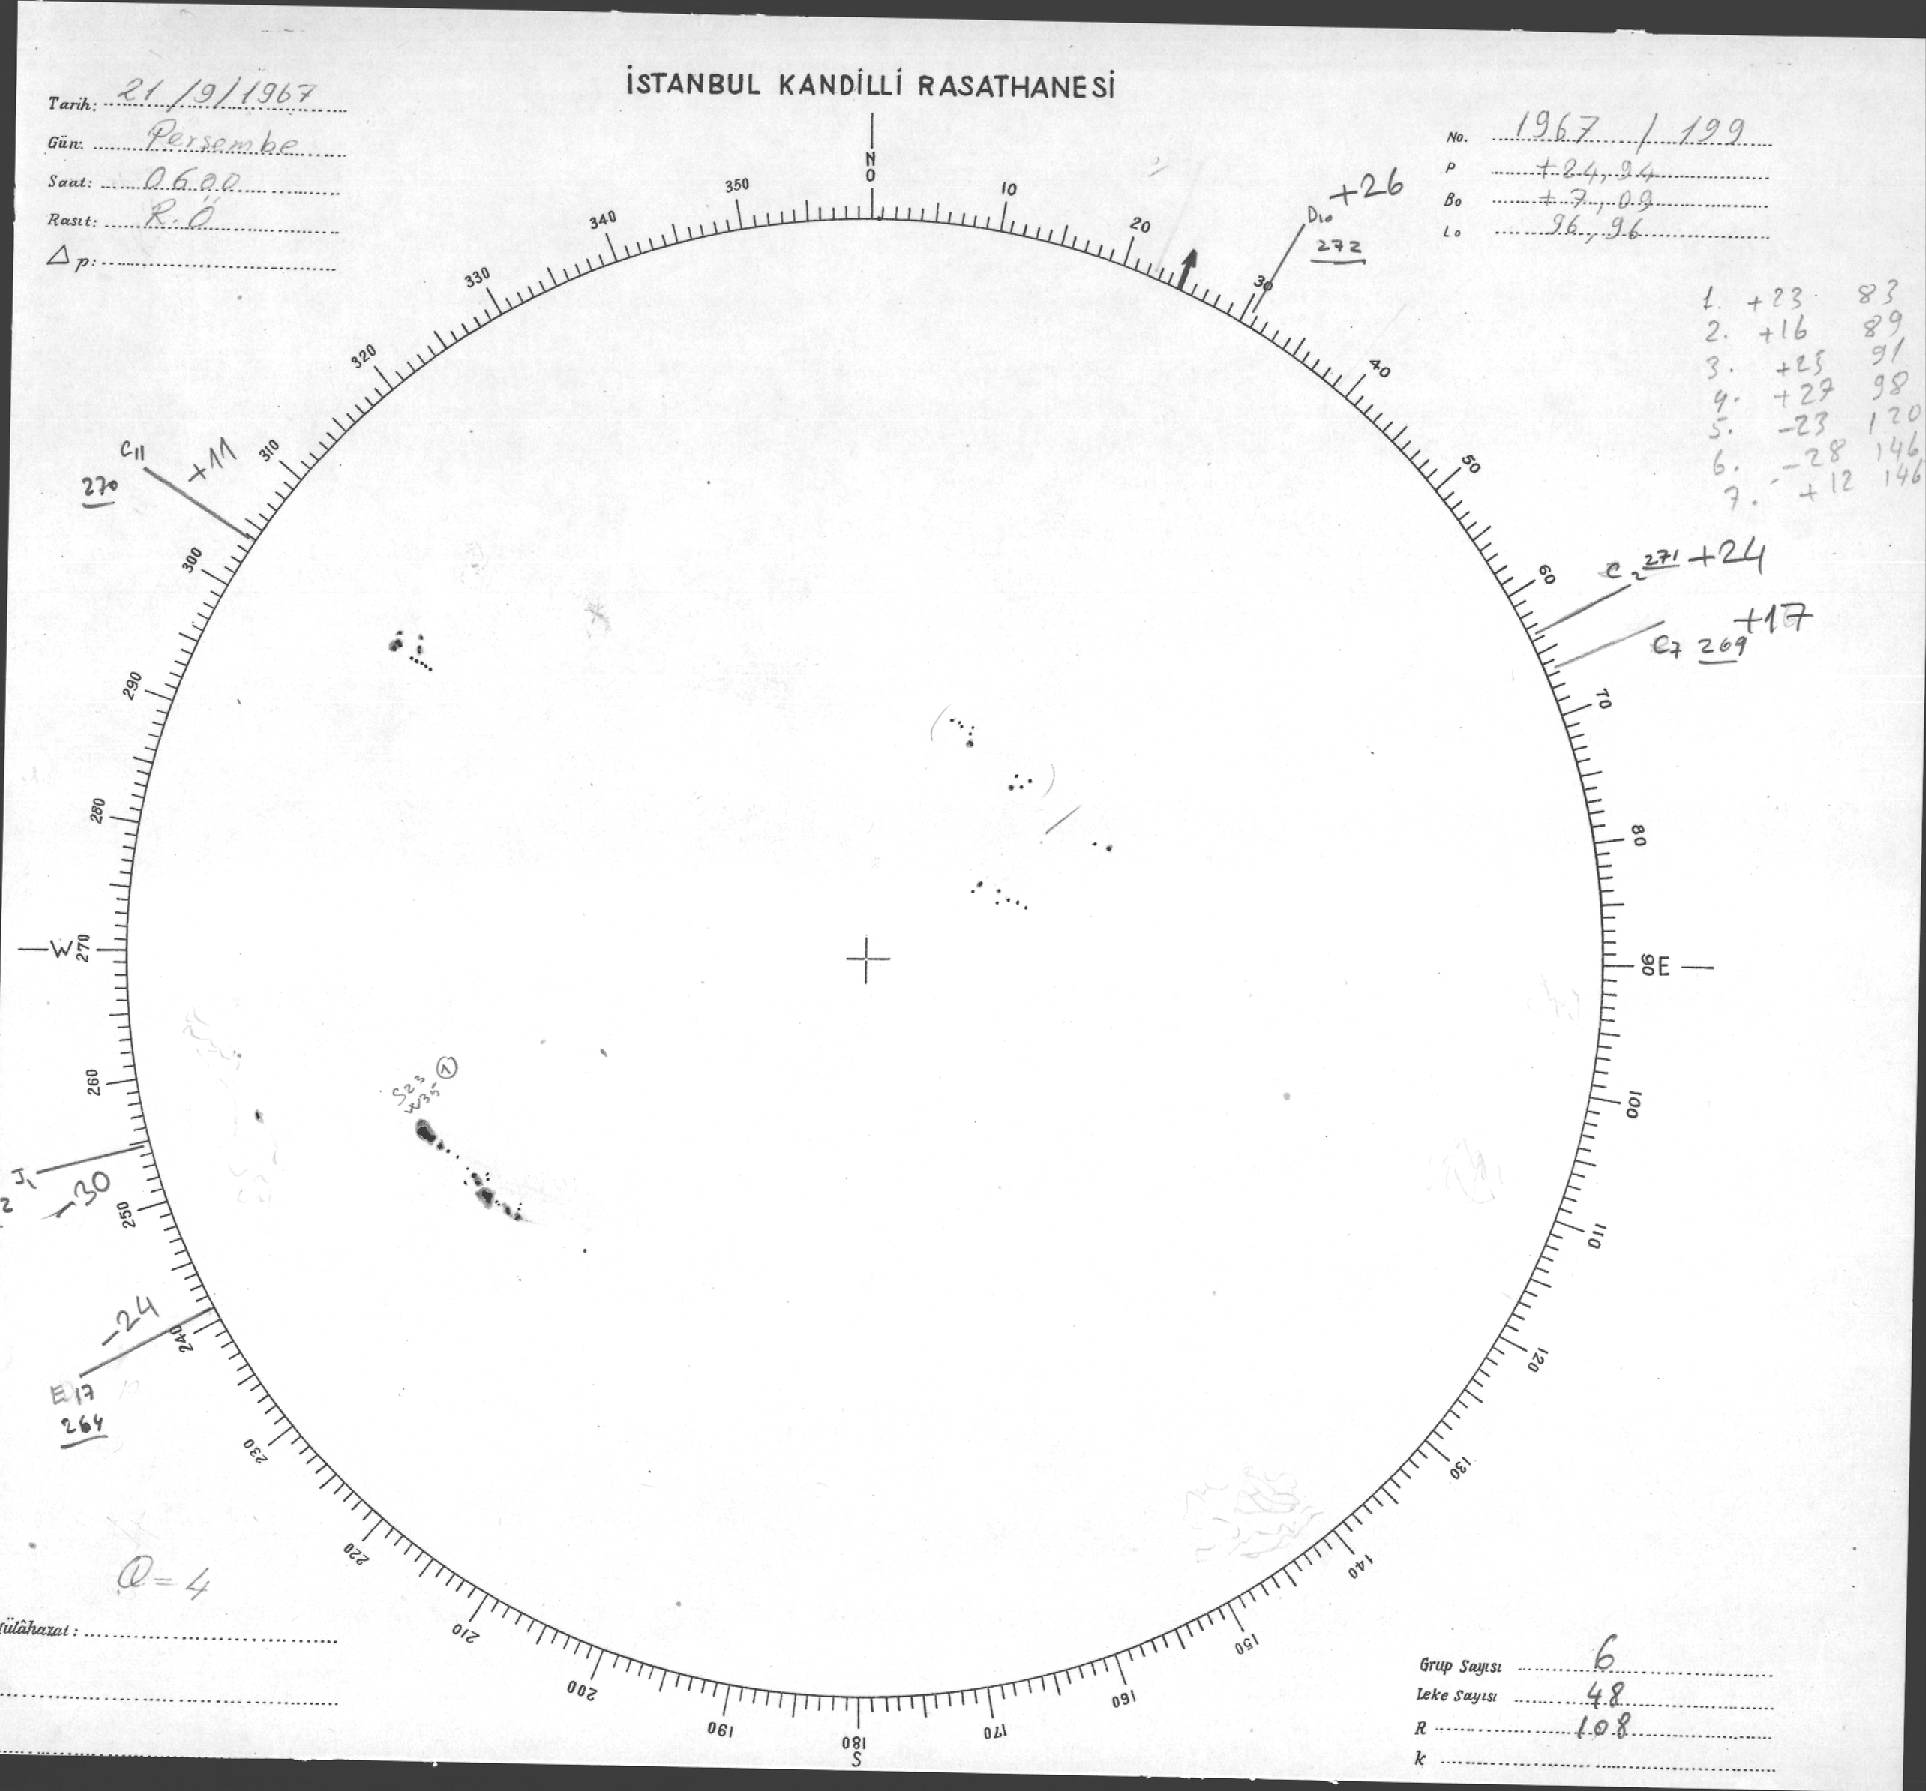 İSTANBUL KANDİLLİ RASATHANESİ
Tarih: 21/9/1967
Gün: Perşembe
Saat: 0600
Rasıt: R.Ö
Δp:
No. 1967 / 199
P +24,94
Bo +7,09
Lo 96,96
1. +23 83
2. +16 89
3. +25 91
4. +27 98
5. -23 120
6. -28 146
7. +12 146
N
0
10
20
30
40
50
60
70
80
90 E
100
110
120
130
140
150
160
170
180
S
190
200
210
220
230
240
250
260
W 270
280
290
300
310
320
330
340
350
D10 +26
272
C2 271 +24
C7 269 +17
C11 +11
270
J1 -30
2
-24
E17
264
S23
W35
1
Q=4
ülâhazat:
Grup Sayısı 6
Leke Sayısı 48
R 108
k